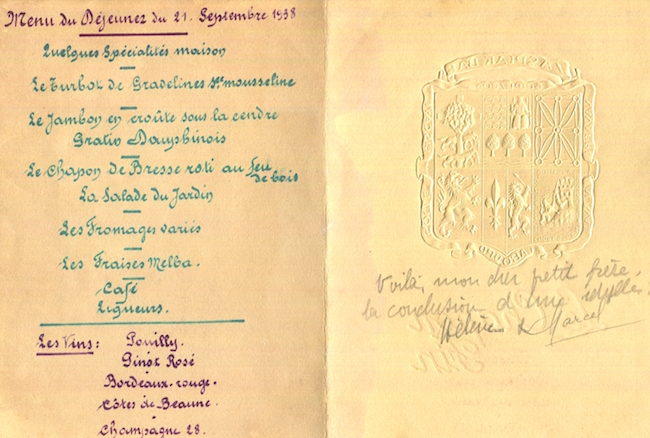 Menu du Déjeuner du 21. Septembre 1938
Quelques Spécialités maison
Le Turbot de Gradelines Sce mousseline
Le Jambon en croûte sous la cendre
Gratin Dauphinois
Le Chapon de Bresse roti au feu
de bois
La Salade du Jardin
Les Fromages variés
Les Fraises Melba.
Café
Liqueurs.
Les Vins: Pouilly.
Pinot Rosé
Bordeaux-rouge.
Côtes de Beaune.
Champagne 28.
Voilà, mon cher petit frère,
la conclusion d'une idylle.
Hélène & Marcel